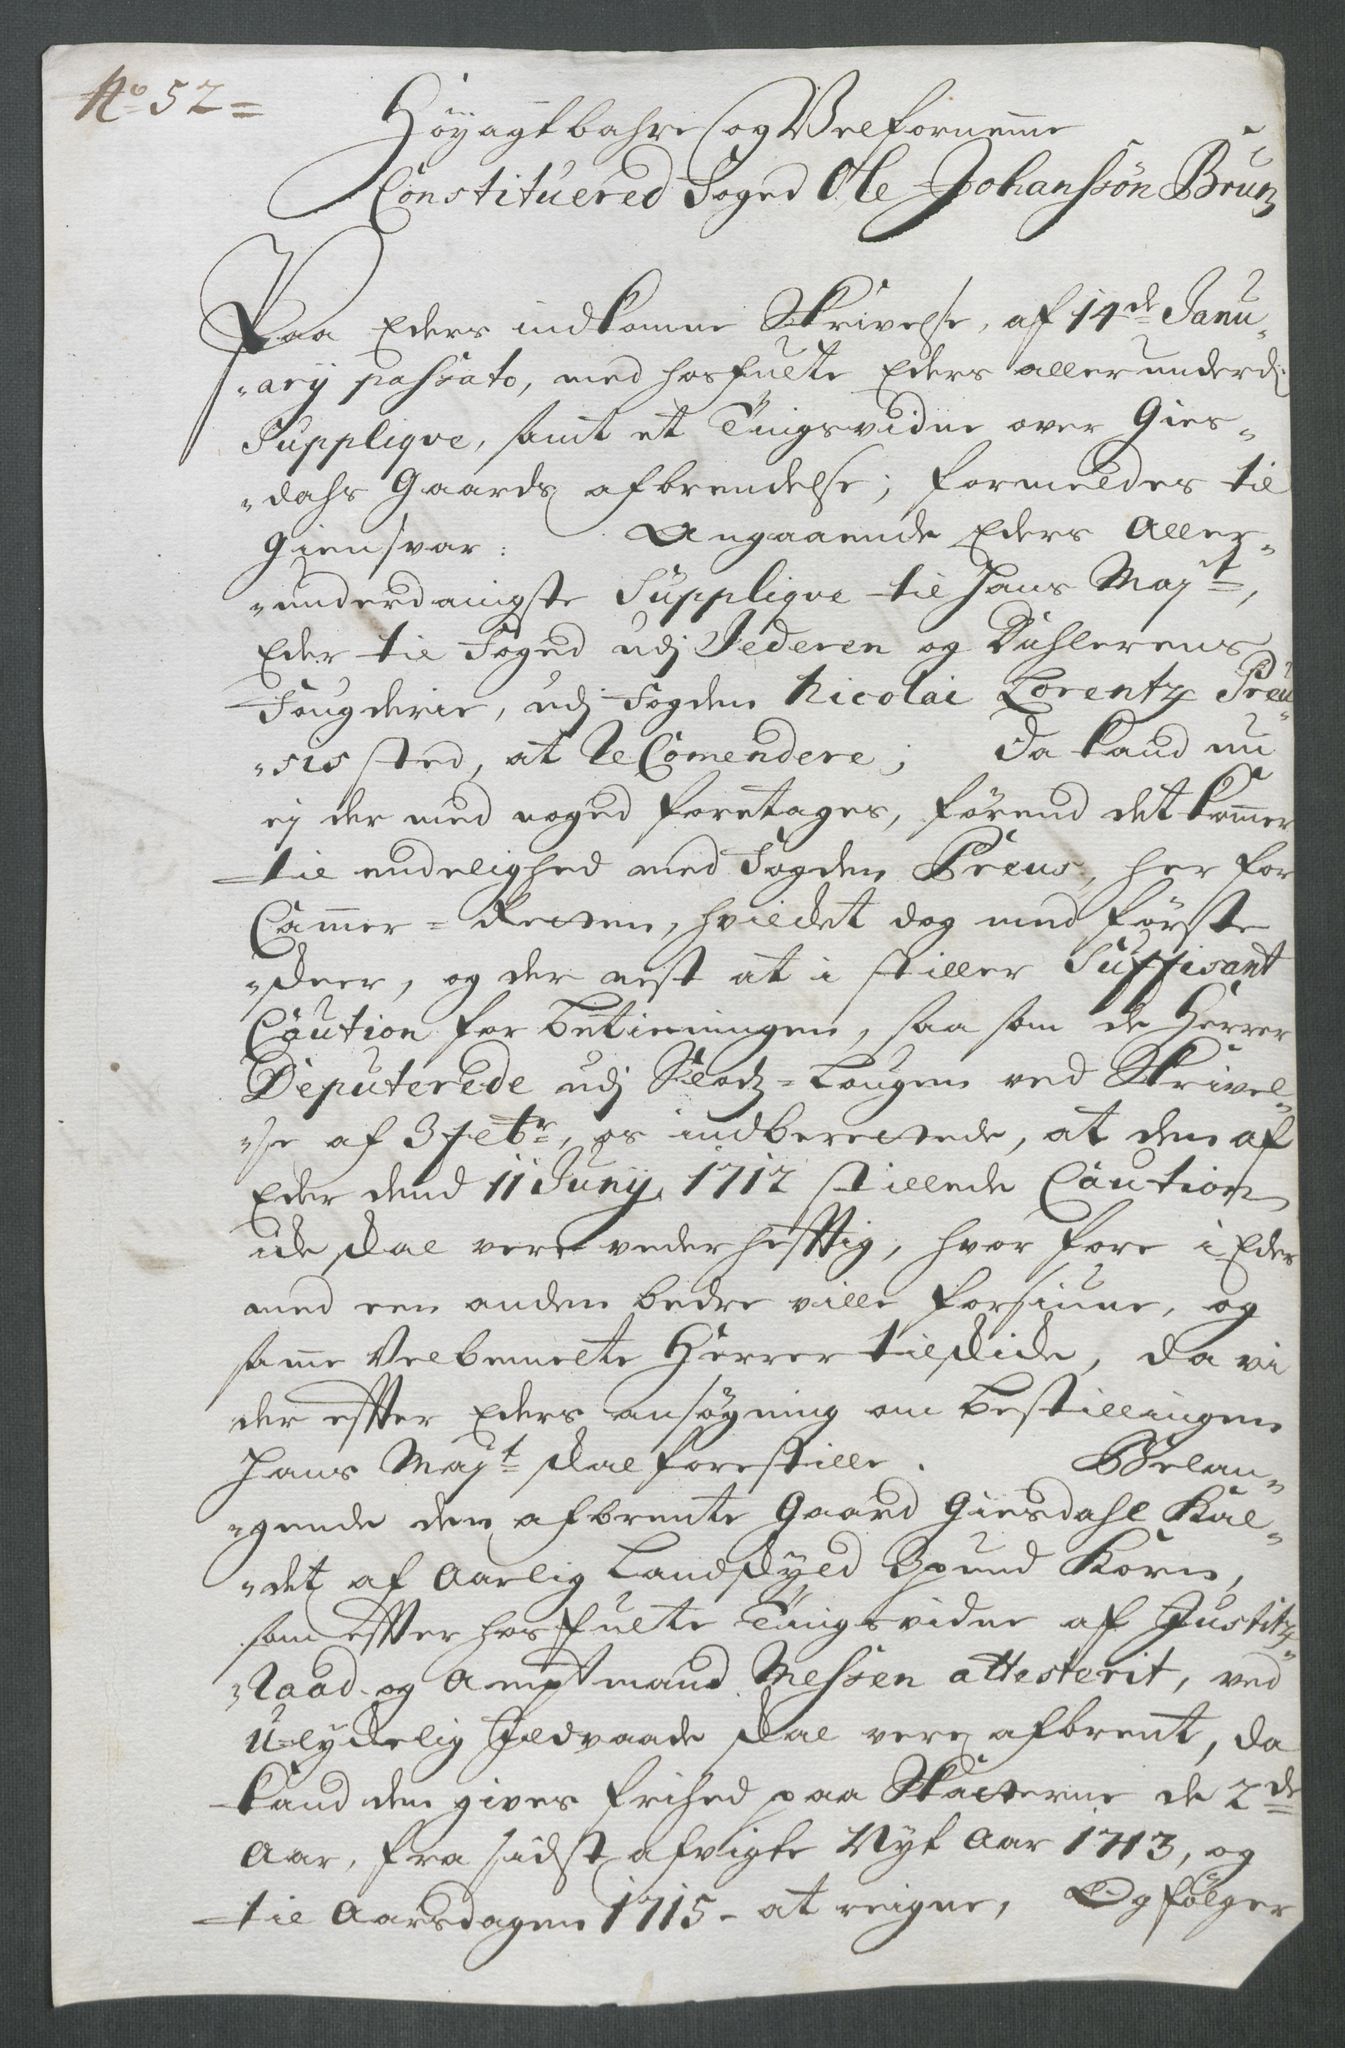 No 52=
Høyagtbahre og Velfornemme
Constituered Foged Ole Johansøn Brun
Paa Eders indkomne Skrivelse, af 14de Janu-
-arij passato, med hosfulte Eders allerunderd:
Supplique, samt et Tingsvidne over Gies-
-dahs Gaards afbrendelse; formeldes til
Giensvar: Angaaende Eders Aller-
-underdanigste Supplique til Hans Majt,
Eder til Foged udj Jederen og Dahlerens
Fougderie, udj Fogden Nicolai Lorentz Preu-
-sis sted, at ReComendere; Da kand nu
ej der med noged foretages, førend det kommer
til endelighed med Fogden Preus, her for
Cammer-Retten, hvilket dog med første
skeer, og der nest at i stiller Suffisant
Caution for betieningen, saa som de Herrer
Deputerede udj Slotz-Lougen ved Skrivel-
-se af 3 Febr, os indberettede, at den af
Eder dend 11 Junij 1712 stillede Caution
icke skal vere vederhefftig, hvor fore i Eder
med een anden bedre ville forsiune, og
samme Velbemelte Herrer tilskicke, da vi
der effter Eders ansøgning om bestillingen
Hans Majt skal forestille. Belan-
-gende den afbrente Gaard Giesdahl Kal-
-det af Aarlig Landskyld 3 pund Korn,
som effter hosfulte Tingsvidne af Justitz-
-Raad og Amptmand Nessen attesterit, ved
U-lyckelig Ildvaade skal vere afbrent, da
kand den gives frihed paa Skatterne de 2de
Aar, fra sidst afvigte Nyt Aar 1713, og
til Aarsdagen 1715 - at reigne, Og følger